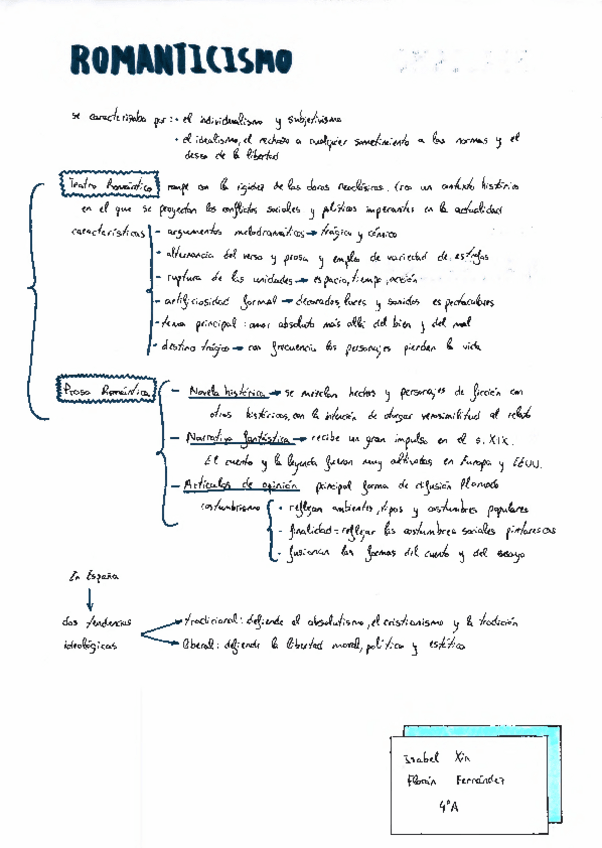 ROMANTICISMO
se caracterizaba por: • el individualismo y subjetivismo
• el idealismo, el rechazo a cualquier sometimiento a las normas y el
deseo de la libertad
Teatro Romántico rompe con la rigidez de las obras neoclásicas. Crea un contexto histórico
en el que se proyectan los conflictos sociales y políticos imperantes en la actualidad
características - argumentos melodramáticos → trágico y cómico
- alternancia del verso y prosa y empleo de variedad de estrofas
- ruptura de las unidades → espacio, tiempo, acción
- artificiosidad formal → decorados, luces y sonidos espectaculares
- tema principal: amor absoluto más allá del bien y del mal
- destino trágico → con frecuencia los personajes pierden la vida
Prosa Romántica - Novela histórica → se mezclan hechos y personajes de ficción con
otros históricos, con la intención de otorgar verosimilitud al relato
- Narrativa fantástica → recibe un gran impulso en el s. XIX.
El cuento y la leyenda fueron muy cultivados en Europa y EEUU.
- Artículos de opinión principal forma de difusión llamado
costumbrismo • reflejan ambientes, tipos y costumbres populares
- finalidad = reflejar las costumbres sociales pintorescas
- fusionan las formas del cuento y del ensayo
En España
dos tendencias → tradicional: defiende el absolutismo, el cristianismo y la tradición
ideológicas → liberal: defiende la libertad moral, política y estética
Isabel Xin
Florin Fernández
4ºA